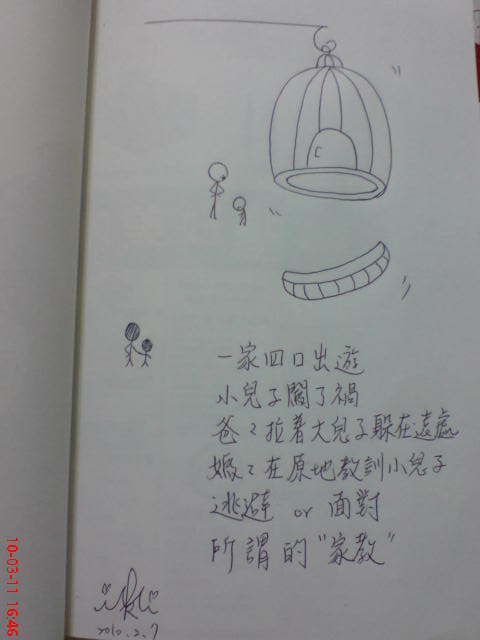 一家四口出遊
小兒子闖了禍
爸々拉着大兒子躲在遠處
媽々在原地教訓小兒子
逃避 or 面對
所謂的"家教"
2010.2.7
10-03-11 16:46